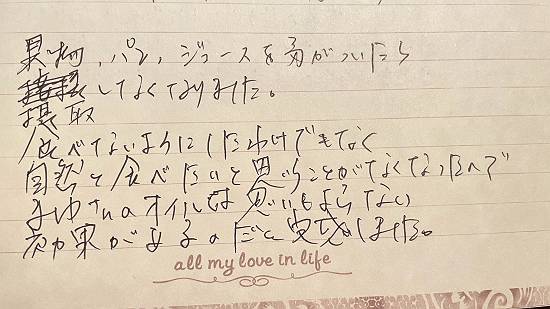 果物、パン、ジュースを気がついたら
しなくなりました。
摂取
食べてないようにしたわけでもなく
自然と食べたいと思うことがなくなったので
まゆさんのオイルは思いもよらない
効果があるのだと実感しました。
all my love in life